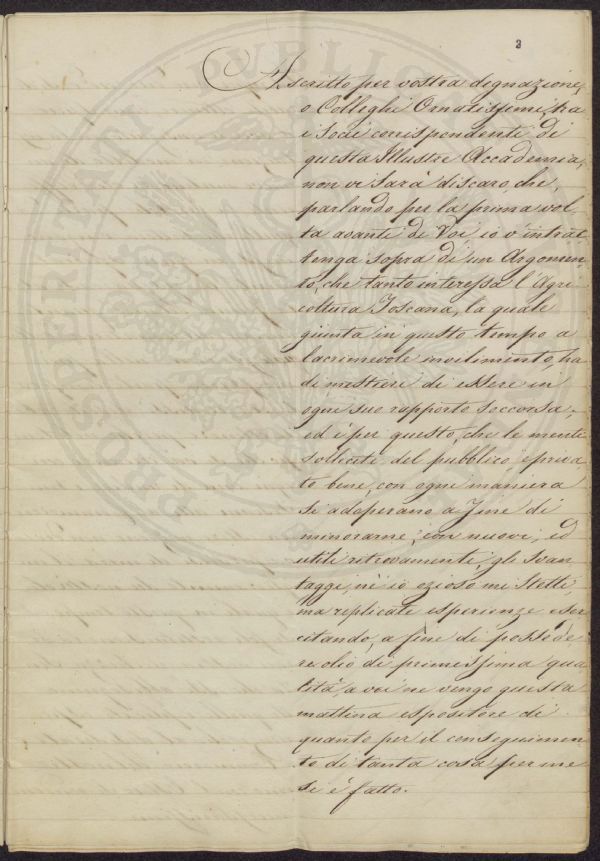 3
Ascritto per vostra degnazione,
o Colleghi Ornatissimi, tra
i Socii corrispondenti di
questa Illustre Accademia,
non vi sarà discaro, che,
parlando per la prima vol-
ta avanti di Voi io v'intrat-
tenga sopra di un Argomen-
to, che tanto interessa l'Agri-
coltura Toscana, la quale
giunta in questo tempo a
lacrimevole invilimento, ha
di mestieri di essere in
ogni suo rapporto soccorsa,
ed è per questo, che le menti
sollecite del pubblico, e priva-
to bene, con ogni maniera
si adoperano a fine di
minorarne, con nuovi, ed
utili ritrovamenti, gli svan-
taggi, nè io ozioso mi stetti,
ma replicate esperienze eser-
citando, a fine di possede-
re olio di primissima qua-
lità, a voi ne vengo questa
mattina espositore di
quanto per il conseguimen-
to di tanta cosa per me
si è fatto.
PROSPERITATI PUBLICAE